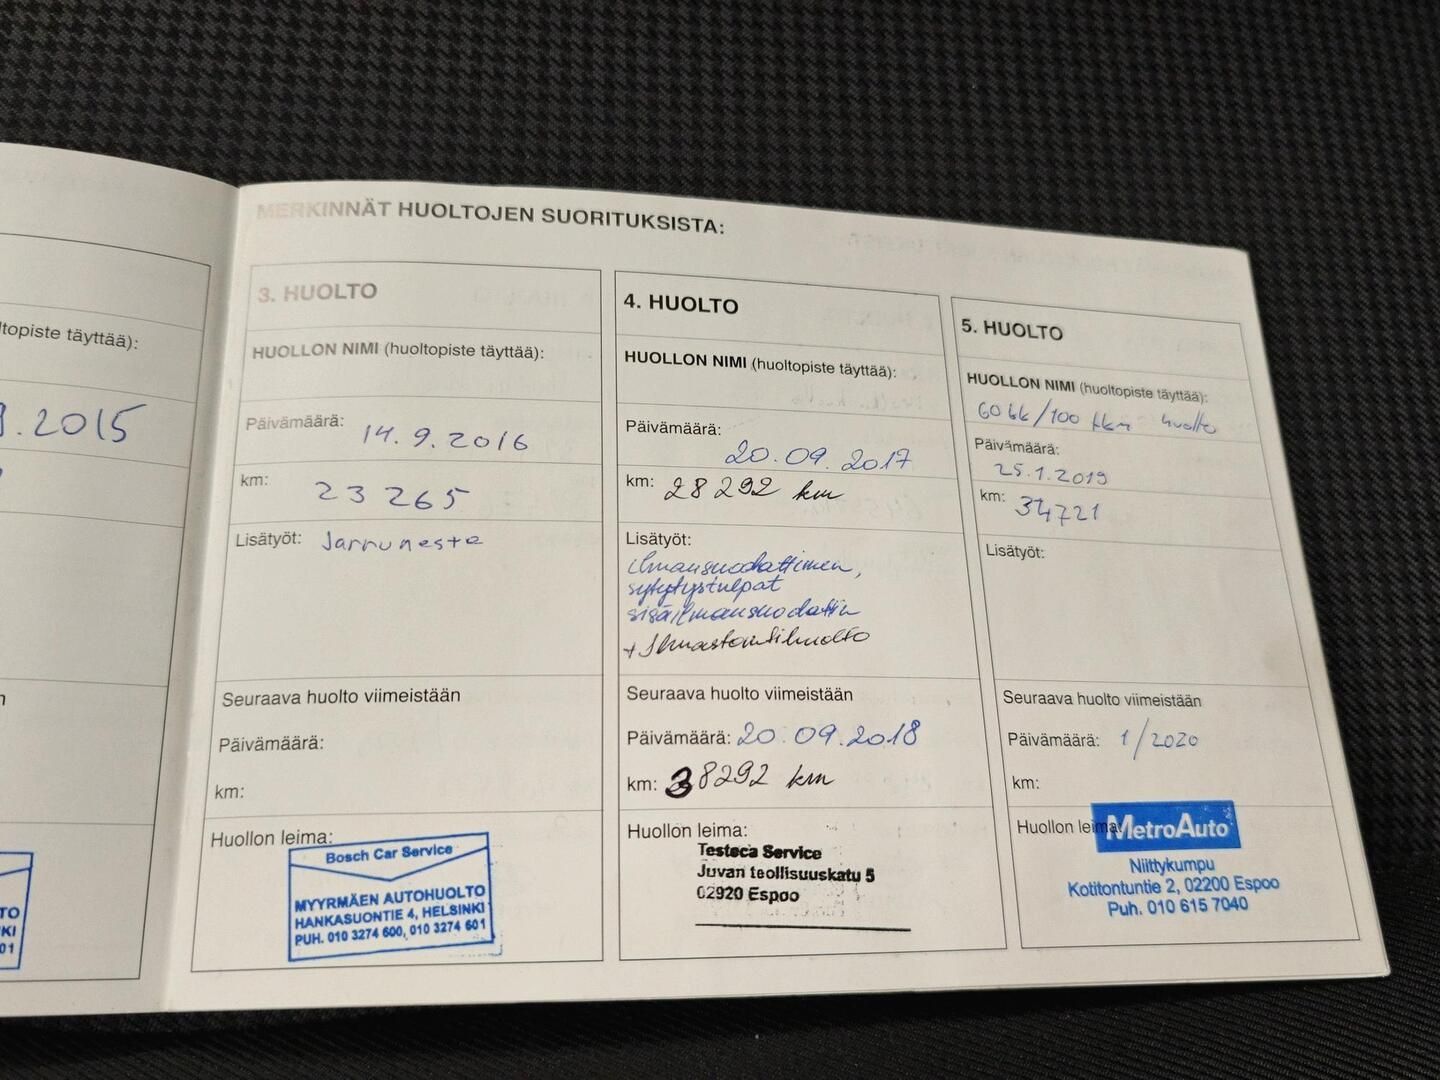 ltopiste täyttää):
9.2015
TO
KI
01
MERKINNÄT HUOLTOJEN SUORITUKSISTA:
3. HUOLTO
HUOLLON NIMI (huoltopiste täyttää):
Päivämäärä: 14.9.2016
km: 23 265
Lisätyöt: Jarruneste
Seuraava huolto viimeistään
Päivämäärä:
km:
Huollon leima:
Bosch Car Service
MYYRMÄEN AUTOHUOLTO
HANKASUONTIE 4, HELSINKI
PUH. 010 3274 600, 010 3274 601
4. HUOLTO
HUOLLON NIMI (huoltopiste täyttää):
Päivämäärä: 20.09.2017
km: 28 292 km
Lisätyöt:
ilmansuodattimen,
sytytystulpat
sisäilmansuodatin
+ Ilmastointihuolto
Seuraava huolto viimeistään
Päivämäärä: 20.09.2018
km: 38292 km
Huollon leima:
Testeca Service
Juvan teollisuuskatu 5
02920 Espoo
5. HUOLTO
HUOLLON NIMI (huoltopiste täyttää):
60 kk/100 tkm huolto
Päivämäärä:
25.1.2019
km: 34721
Lisätyöt:
Seuraava huolto viimeistään
Päivämäärä: 1/2020
km:
Huollon leima:
MetroAuto
Niittykumpu
Kotitontuntie 2, 02200 Espoo
Puh. 010 615 7040